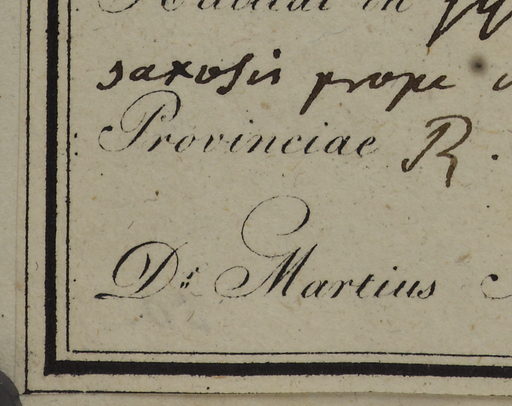 Habitat in
saxosis prope
Provinciae R.
Dr. Martius